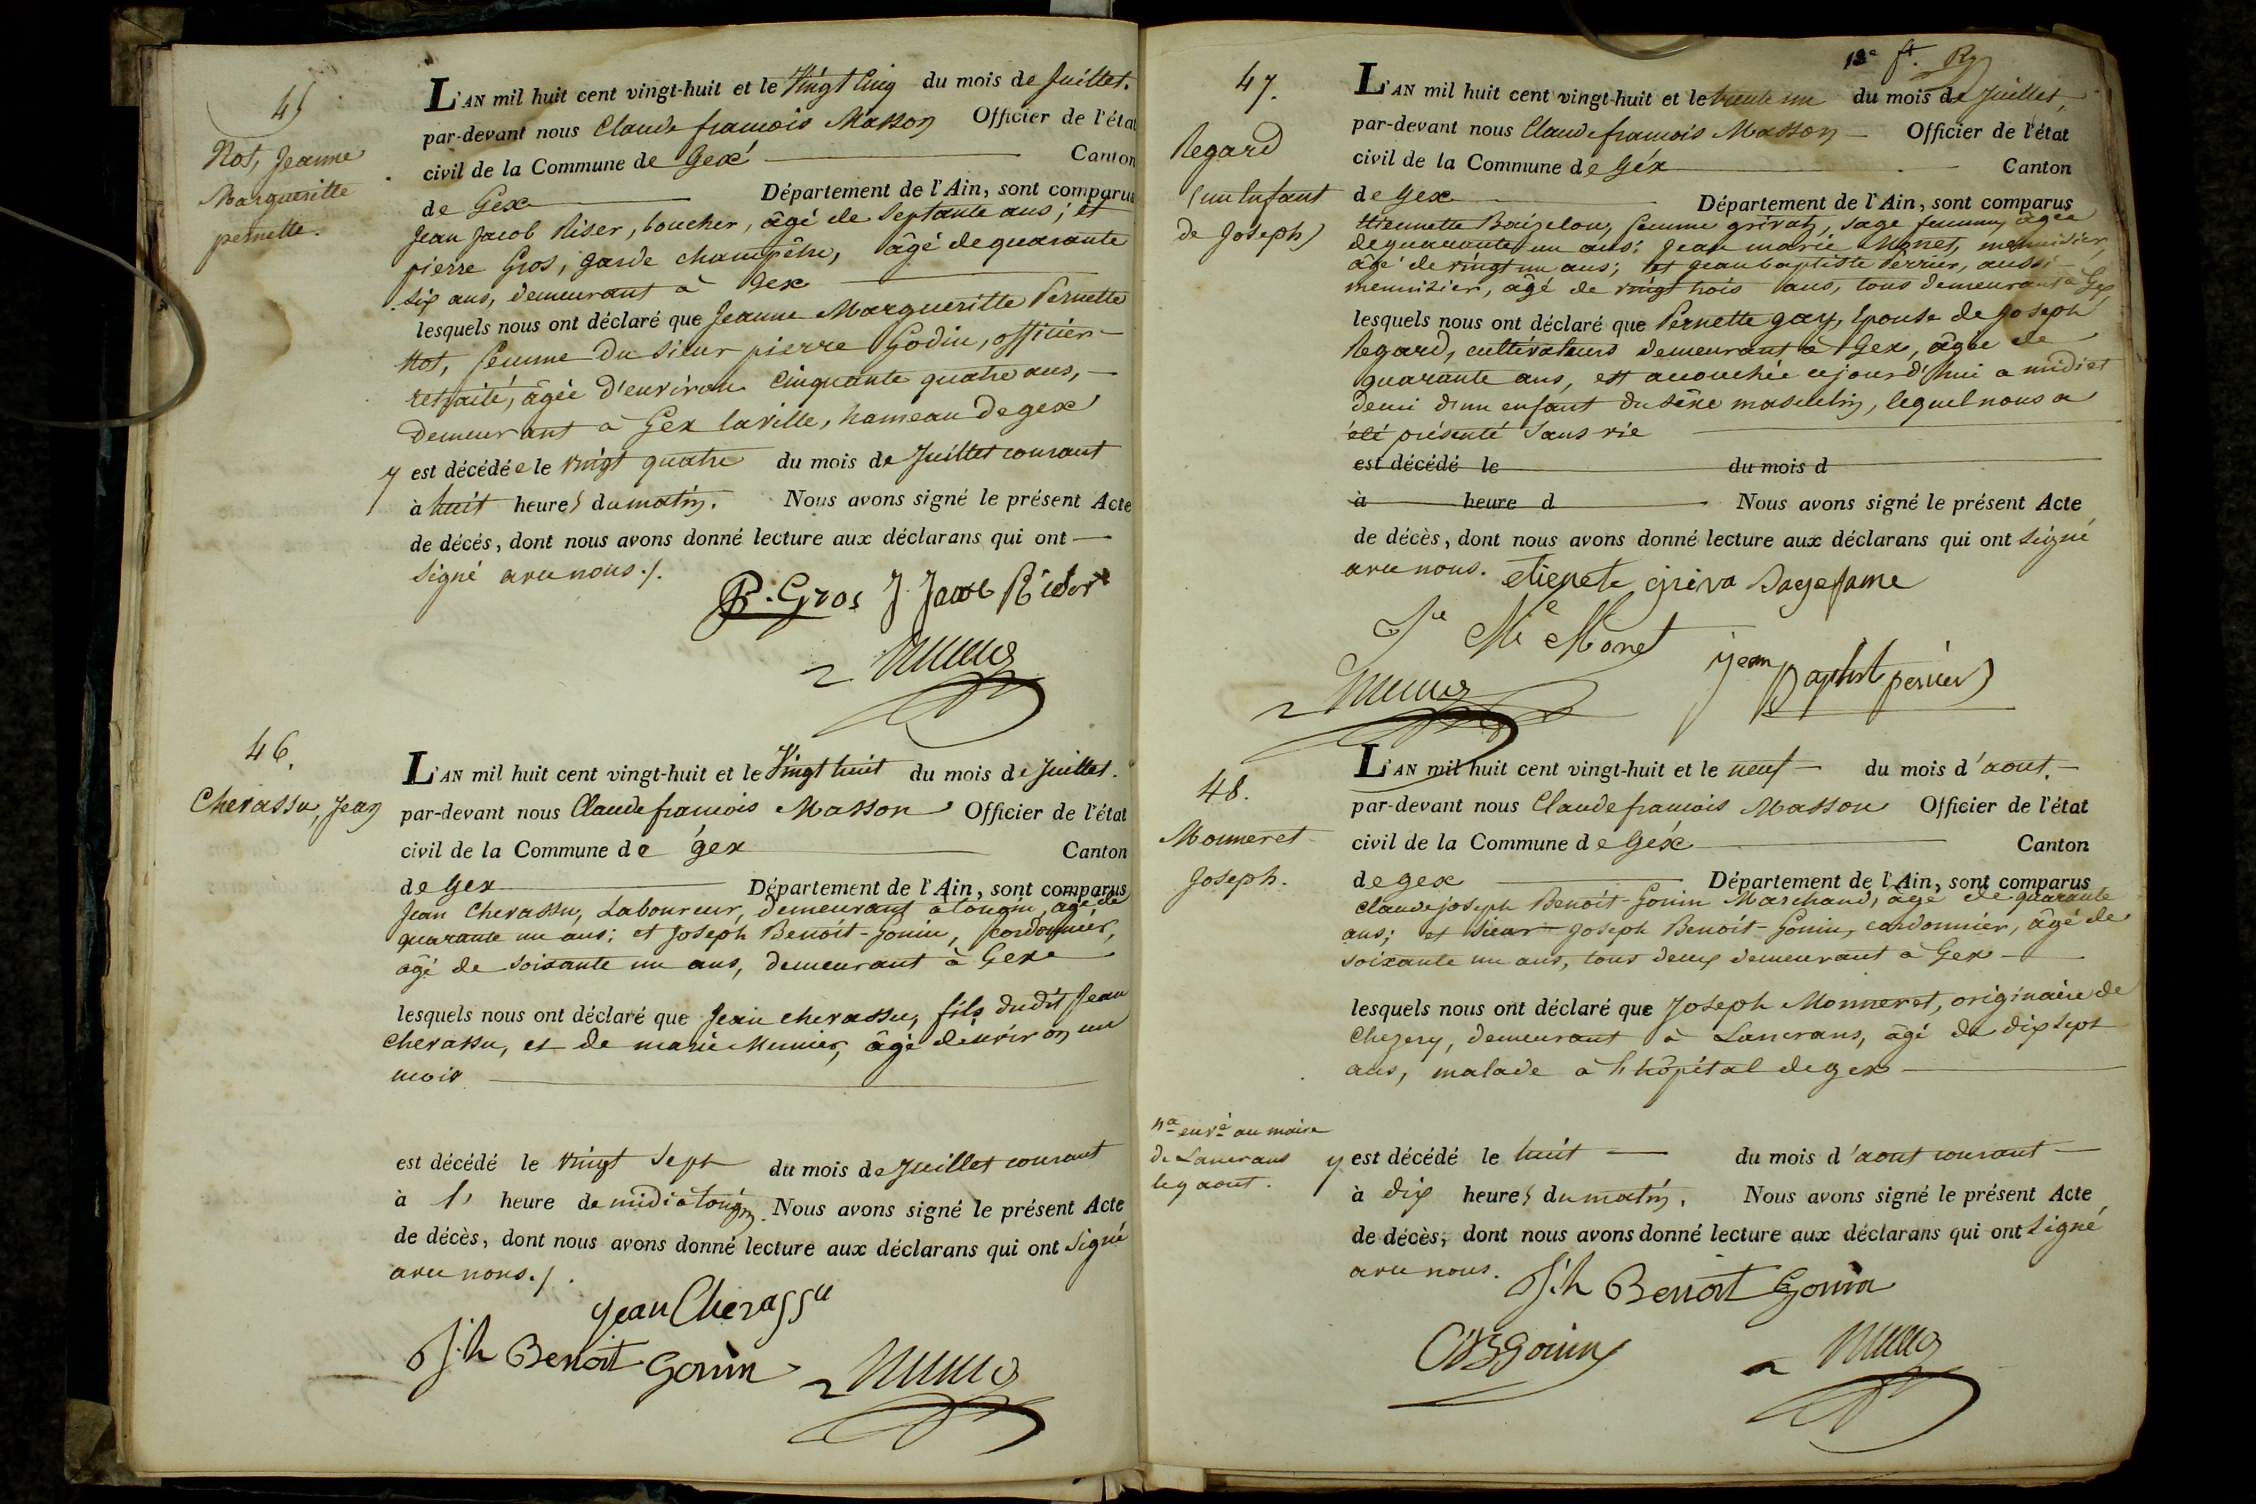 45
Not, Jeanne
Margueritte
pernette.
L'AN mil huit cent vingt-huit et le Vingt Cinq du mois de Juillet.
par-devant nous Claude francois Masson Officier de l'état
civil de la Commune de Gex Canton
de Gex Département de l'Ain, sont comparus
Jean Jacob Riser, boucher, âgé de Septante ans; et
pierre Gros, garde champêtre, âgé de quarante
six ans, demeurant à Gex
lesquels nous ont déclaré que Jeanne Margueritte Pernette
Not, femme du sieur pierre Godin, officier
retraité, âgée d'environ Cinquante quatre ans,
demeurant à Gex laville, hameau de gex
y est décédée le vingt quatre du mois de Juillet courant
à huit heures du matin. Nous avons signé le présent Acte
de décés, dont nous avons donné lecture aux déclarans qui ont
signé avec nous ./.
P. Gros J. Jacob
46.
Chevassu, Jean
L'AN mil huit cent vingt-huit et le Vingt huit du mois de Juillet.
par-devant nous Claude francois Masson Officier de l'état
civil de la Commune de gex Canton
de Gex Département de l'Ain, sont comparus
Jean Chevassu, Laboureur, demeurant à tougin, âgé de
quarante un ans; et Joseph Benoit-Gonin, cordonnier,
âgé de soixante un ans, demeurant à Gex
lesquels nous ont déclaré que Jean chevassu, fils dudit Jean
chevassu, et de marie Munier, âgé d'environ un
mois
est décédé le vingt Sept du mois de Juillet courant
à l' heure de midi à tougin. Nous avons signé le présent Acte
de décès, dont nous avons donné lecture aux déclarans qui ont signé
avec nous ./.
Jean Chevassu
Jh Benoit Gonin
12e ft. Rg
47.
Regard
(un Enfant
de Joseph)
L'AN mil huit cent vingt-huit et le trente un du mois de Juillet,
par-devant nous Claude francois Masson Officier de l'état
civil de la Commune de Géx Canton
de Gex Département de l'Ain, sont comparus
Etiennette Boizelon, femme grivat, sage femme, âgée
de quarante un ans; Jean marie Monet, menuisier,
âgé de vingt un ans; et Jean baptiste Perrier, aussi
menuisier, âgé de vingt trois ans, tous demeurant à Gex
lesquels nous ont déclaré que Pernette gay, Epouse de Joseph
Regard, cultivateurs demeurant à Gex, âgée de
quarante ans, est accouchée cejourd'hui a midi et
demi d'un enfant du séxe masculin, lequel nous a
été présenté sans vie
est décédé le du mois d
à heure d Nous avons signé le présent Acte
de décès, dont nous avons donné lecture aux déclarans qui ont signé
avec nous. etienete griva Sagefame
Jn Me Monet
yean Baptist perrier
48.
Monneret
Joseph.
L'AN mil huit cent vingt-huit et le neuf du mois d'aout.
par-devant nous Claude francois Masson Officier de l'état
civil de la Commune de Géx Canton
de gex Département de l'Ain, sont comparus
Claude joseph Benoit-Gonin Marchand, âgé de quarante
ans; et sieur Joseph Benoit-Gonin, cordonnier, âgé de
soixante un ans, tous deux demeurant à Gex
lesquels nous ont déclaré que Joseph Monneret, originaire de
Chezery, demeurant à Lancrans, âgé de dix sept
ans, malade à l'hôpital de gex
na envé au maire
de Lancrans
le 9 aout.
y est décédé le huit du mois d'aout courant
à dix heures du matin. Nous avons signé le présent Acte
de décès, dont nous avons donné lecture aux déclarans qui ont signé
avec nous.
Jh Benoit Gonin
CJBGonin